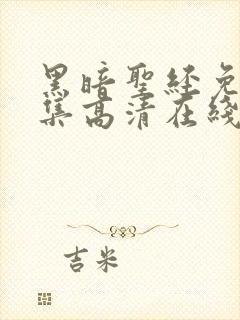 黑暗聖經免
集高清在綫
吉米